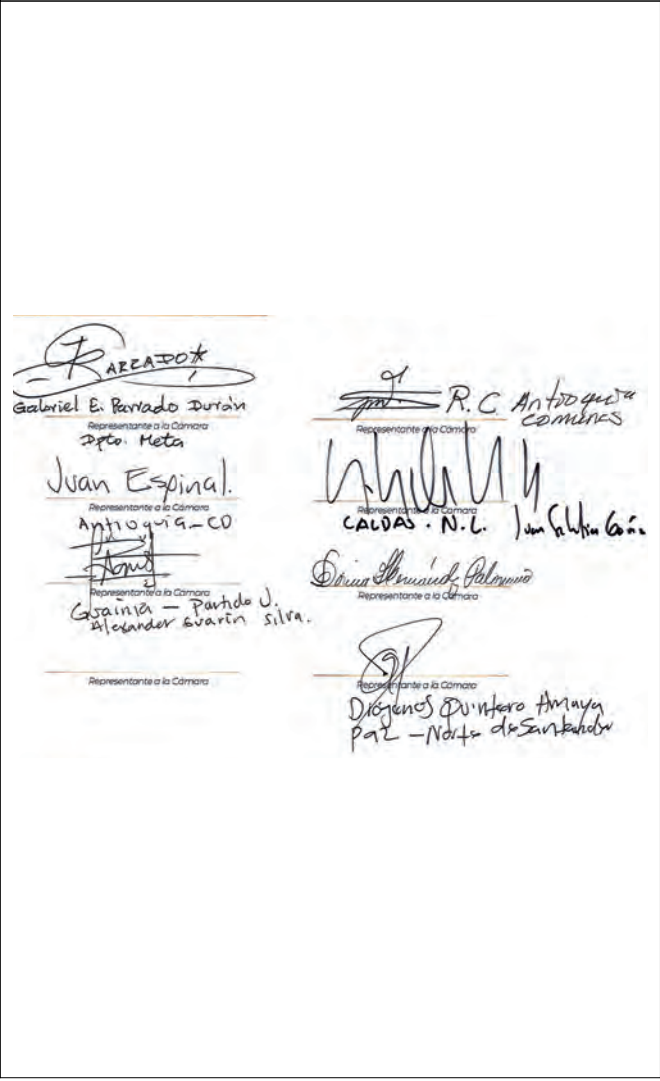 PARRADO
Gabriel E. Parrado Durán
Representante a la Cámara
Dpto. Meta
Juan Espinal.
Representante a la Cámara
Antioquia - CD
Representante a la Cámara
Guainía - Partido U.
Alexander Guarín Silva.
Representante a la Cámara
R.C. Antioquia
COMUNES
Representante a la Cámara
Representante a la Cámara
CALDAS. N.L. Juan
Hernández Palomino
Representante a la Cámara
Representante a la Cámara
Diógenes Quintero Amaya
Paz - Norte de Santander